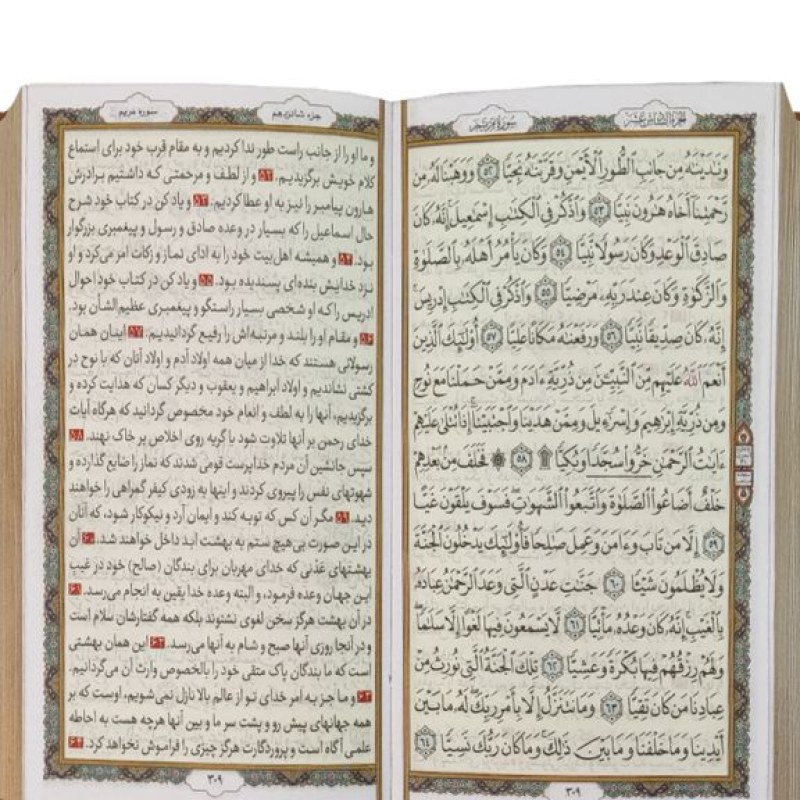 الجزء السادس عشر
سورة مريم
وَنَٰدَيْنَٰهُ مِن جَانِبِ ٱلطُّورِ ٱلْأَيْمَنِ وَقَرَّبْنَٰهُ نَجِيًّا ﴿٥٢﴾ وَوَهَبْنَا لَهُۥ مِن
رَّحْمَتِنَآ أَخَاهُ هَٰرُونَ نَبِيًّا ﴿٥٣﴾ وَٱذْكُرْ فِى ٱلْكِتَٰبِ إِسْمَٰعِيلَ ۚ إِنَّهُۥ كَانَ
صَادِقَ ٱلْوَعْدِ وَكَانَ رَسُولًا نَّبِيًّا ﴿٥٤﴾ وَكَانَ يَأْمُرُ أَهْلَهُۥ بِٱلصَّلَوٰةِ
وَٱلزَّكَوٰةِ وَكَانَ عِندَ رَبِّهِۦ مَرْضِيًّا ﴿٥٥﴾ وَٱذْكُرْ فِى ٱلْكِتَٰبِ إِدْرِيسَ ۚ
إِنَّهُۥ كَانَ صِدِّيقًا نَّبِيًّا ﴿٥٦﴾ وَرَفَعْنَٰهُ مَكَانًا عَلِيًّا ﴿٥٧﴾ أُو۟لَٰٓئِكَ ٱلَّذِينَ
أَنْعَمَ ٱللَّهُ عَلَيْهِم مِّنَ ٱلنَّبِيِّـۧنَ مِن ذُرِّيَّةِ ءَادَمَ وَمِمَّنْ حَمَلْنَا مَعَ نُوحٍ
وَمِن ذُرِّيَّةِ إِبْرَٰهِيمَ وَإِسْرَٰٓءِيلَ وَمِمَّنْ هَدَيْنَا وَٱجْتَبَيْنَآ ۚ إِذَا تُتْلَىٰ عَلَيْهِمْ
ءَايَٰتُ ٱلرَّحْمَٰنِ خَرُّوا۟ سُجَّدًا وَبُكِيًّا ۩ ﴿٥٨﴾ ۞ فَخَلَفَ مِنۢ بَعْدِهِمْ
خَلْفٌ أَضَاعُوا۟ ٱلصَّلَوٰةَ وَٱتَّبَعُوا۟ ٱلشَّهَوَٰتِ ۖ فَسَوْفَ يَلْقَوْنَ غَيًّا
﴿٥٩﴾ إِلَّا مَن تَابَ وَءَامَنَ وَعَمِلَ صَٰلِحًا فَأُو۟لَٰٓئِكَ يَدْخُلُونَ ٱلْجَنَّةَ
وَلَا يُظْلَمُونَ شَيْـًٔا ﴿٦٠﴾ جَنَّٰتِ عَدْنٍ ٱلَّتِى وَعَدَ ٱلرَّحْمَٰنُ عِبَادَهُۥ
بِٱلْغَيْبِ ۚ إِنَّهُۥ كَانَ وَعْدُهُۥ مَأْتِيًّا ﴿٦١﴾ لَّا يَسْمَعُونَ فِيهَا لَغْوًا إِلَّا سَلَٰمًا ۖ
وَلَهُمْ رِزْقُهُمْ فِيهَا بُكْرَةً وَعَشِيًّا ﴿٦٢﴾ تِلْكَ ٱلْجَنَّةُ ٱلَّتِى نُورِثُ مِنْ
عِبَادِنَا مَن كَانَ تَقِيًّا ﴿٦٣﴾ وَمَا نَتَنَزَّلُ إِلَّا بِأَمْرِ رَبِّكَ ۖ لَهُۥ مَا بَيْنَ
أَيْدِينَا وَمَا خَلْفَنَا وَمَا بَيْنَ ذَٰلِكَ ۚ وَمَا كَانَ رَبُّكَ نَسِيًّا ﴿٦٤﴾
۳۰۹
جزء شانزدهم
سوره مریم
و ما او را از جانب راست طور ندا کردیم و به مقام قرب خود برای استماع
کلام خویش برگزیدیم. ۵۲ و از لطف و مرحمتی که داشتیم برادرش
هارون پیامبر را نیز به او عطا کردیم. ۵۳ و یاد کن در کتاب خود شرح
حال اسماعیل را که بسیار در وعده صادق و رسول و پیغمبری بزرگوار
بود. ۵۴ و همیشه اهل بیت خود را به ادای نماز و زکات امر می‌کرد و او
نزد خدایش بنده‌ای پسندیده بود. ۵۵ و یاد کن در کتاب خود احوال
ادریس را که او شخصی بسیار راستگو و پیغمبری عظیم‌الشأن بود.
۵۶ و مقام او را بلند و مرتبه‌اش را رفیع گردانیدیم. ۵۷ اینان همان
رسولانی هستند که خدا از میان همه اولاد آدم و اولاد آنان که با نوح در
کشتی نشاندیم و اولاد ابراهیم و یعقوب و دیگر کسان که هدایت کرده و
برگزیدیم، آنها را به لطف و انعام خود مخصوص گردانید که هرگاه آیات
خدای رحمن بر آنها تلاوت شود با گریه روی اخلاص بر خاک نهند. ۵۸
سپس جانشین آن مردم خداپرست قومی شدند که نماز را ضایع گذارده و
شهوتهای نفس را پیروی کردند و اینها به زودی کیفر گمراهی را خواهند
دید. ۵۹ مگر آن کس که توبه کند و ایمان آرد و نیکوکار شود، که آنان
در این صورت بی‌هیچ ستم به بهشت ابد داخل خواهند شد. ۶۰ آن
بهشتهای عَدْنی که خدای مهربان برای بندگان (صالح) خود در غیب
این جهان وعده فرمود، و البته وعده خدا یقین به انجام می‌رسد. ۶۱
در آن بهشت هرگز سخن لغوی نشنوند بلکه همه گفتارشان سلام است
و در آنجا روزی آنها صبح و شام به آنها می‌رسد. ۶۲ این همان بهشتی
است که ما بندگان پاک متقی خود را بالخصوص وارث آن می‌گردانیم.
۶۳ و ما جز به امر خدای تو از عالم بالا نازل نمی‌شویم، اوست که بر
همه جهانهای پیش رو و پشت سر ما و بین آنها هرچه هست به احاطه
علمی آگاه است و پروردگارت هرگز چیزی را فراموش نخواهد کرد. ۶۴
۳۰۹